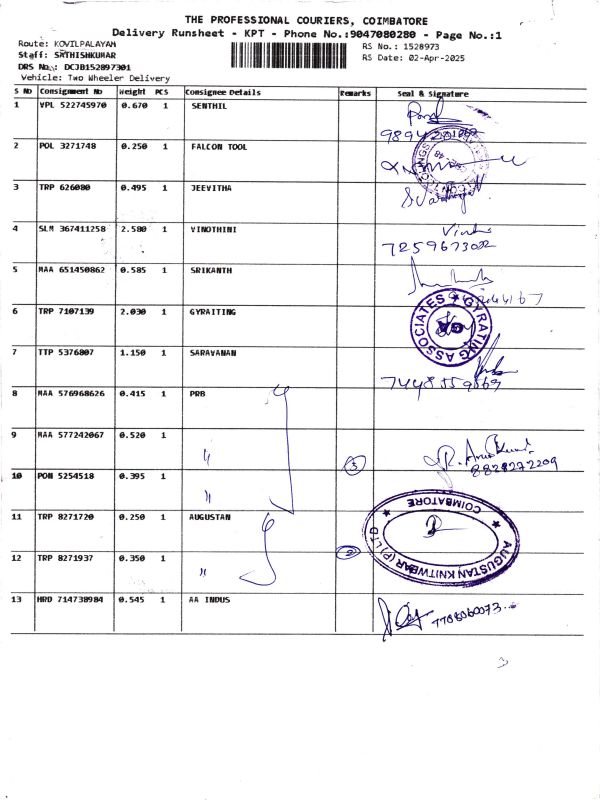 THE PROFESSIONAL COURIERS, COIMBATORE
Delivery Runsheet - KPT - Phone No.:9047080280 - Page No.:1
Route: KOVILPALAYAM
RS No.: 1528973
Staff: SATHISHKUMAR
RS Date: 02-Apr-2025
DRS No.: DCJB152897301
Vehicle: Two Wheeler Delivery
S No Consignment No Weight PCS Consignee Details Remarks Seal & Signature
1 VPL 522745970 0.670 1 SENTHIL
2 POL 3271748 0.250 1 FALCON TOOL
3 TRP 626080 0.495 1 JEEVITHA
4 SLM 367411258 2.580 1 VINOTHINI
7259673022
5 MAA 651450862 0.585 1 SRIKANTH
6 TRP 7107139 2.030 1 GYRAITING
GYRATING ASSOCIATES
7 TTP 5376807 1.150 1 SARAVANAN
8 MAA 576968626 0.415 1 PRB
9 MAA 577242067 0.520 1 " 3
8828272209
10 PON 5254518 0.395 1 "
11 TRP 8271720 0.250 1 AUGUSTAN
AUGUSTAN KNITWEAR (P) LTD
COIMBATORE
12 TRP 8271937 0.350 1 " 2
13 HRD 714738984 0.545 1 AA INDUS
7708060073
3